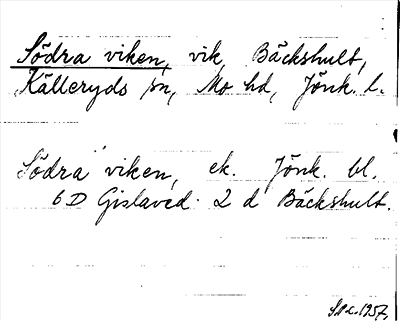 Södra viken, vik, Bäckshult,
Källeryds sn, Mo hd, Jönk. l.
Södra viken, ek. Jönk. bl.
6 D Gislaved. 2 d Bäckshult.
1957.